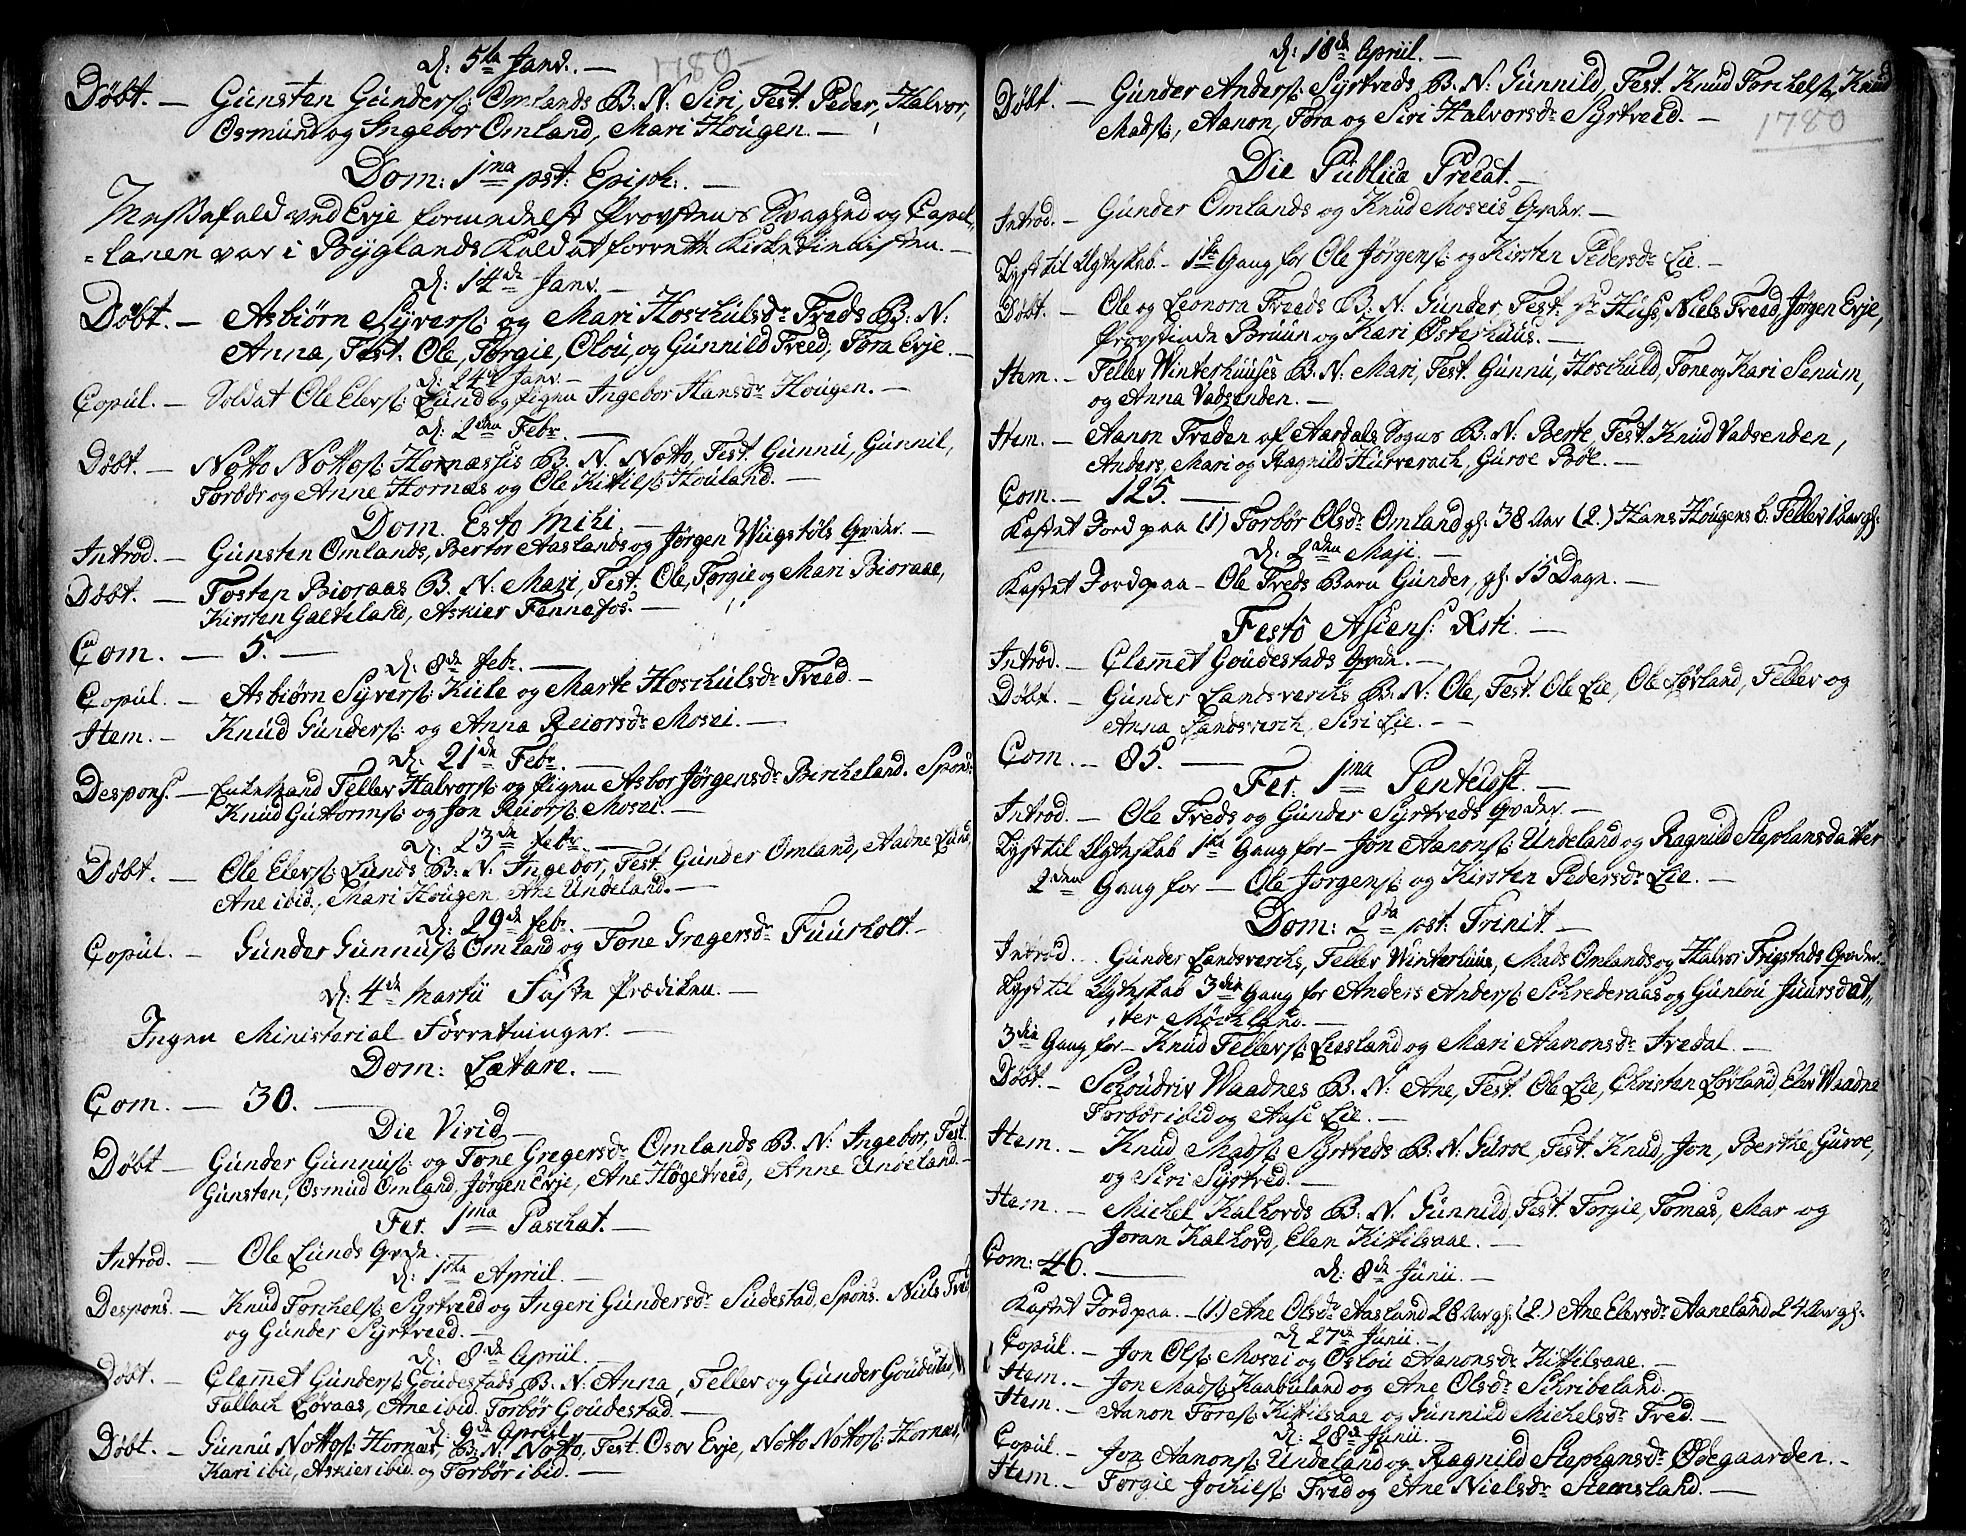 d: 5te Janv. — 1780 —
Döbt. — Gunsten Gunders: Omlands B: N: Siri, Test. Peder, Halvor,
Osmund og Ingebor Omland, Mari Hougen. —
Dom: 1ma pst: Epiph: —
Messefald ved Evje formedelst Provstens Svaghed og Capel-
lanen var i Byglands Kald at forrette Kirketienesten. —
d: 14de Janv. —
Döbt. — Asbiörn Syvers: og Mari Hoschulsdr Freds B: N:
Anna, Test. Ole, Torgie, Olou, og Gunnild Freed, Tora Evje. —
d: 24de Janv. —
Copul. — Soldat Ole Elers: Lund og Pigen Ingebor Hansdr Hougen. —
d: 2den Febr. —
Döbt. — Notto Nottos: Hornæssis B. N. Notto, Test. Gunnu, Gunnil,
Torbor og Anne Hornæs og Ole Kittils: Houland. —
Dom. Esto Mihi. —
Introd. — Gunsten Omlands, Bertor Aaslands og Jörgen Wiigstöls Qvder. —
Döbt. — Tosten Bioraas B. N: Mari, Test. Ole, Torgie og Mari Bioraae,
Kirsten Galteland, Askier Fennefos. —
Com. — 5. —
d: 8de febr. —
Copul. — Asbiörn Syvers: Kiile og Marte Hoschulsdr Freed. —
Item. — Knud Gunders: og Anna Reiorsdr Mosei. —
d: 21de Febr. —
Despons. — Enkemand Tellev Halvors: og Pigen Asbor Jörgensdr Bircheland. Spons.
Knud Guttorms: og Jon Reiors: Mosei. —
d: 23de febr. —
Döbt. — Ole Elers: Lunds B: N: Ingebor, Test. Gunder Omland, Aadne Lund,
Ane ibid., Mari Hougen, Ane Undeland. —
d: 29de febr. —
Copul. — Gunder Gunnus: Omland og Tone Gregersdr Fuurholt. —
d: 4de Martii Faste Prædiken. —
Ingen Ministerial Forretninger. —
Dom: Lætare. —
Com. — 30. —
Die Virid. —
Döbt — Gunder Gunnus: og Tone Gregersdr Omlands B: N: Ingebor, Test.
Gunsten, Osmud Omland, Jörgen Evje, Ane Högetveed, Anne Undeland. —
Fer. 1ma Paschat. —
Introd. — Ole Lunds Qvde. —
d: 1ste Apriil. —
Despons. — Knud Torchels: Syrtveed og Ingeri Gundersdr Sudestad, Spons. Niels Fred
og Gunder Syrtveed. —
d: 8de Apriil. —
Döbt. — Clemmet Gunders: Goudestads B: N: Anna, Tellev og Gunder Goudestad,
Tallach Löraas, Ane ibid. Torbör Goudestad. —
d: 9de Apriil. —
Döbt. — Gunnu Nottos: Hornæs, B: N: Notto, Test. Osov Evje, Notto Nottos: Hornæs,
Kari ibid, Askier ibid. og Torbör ibid. —
d: 18de Apriil. —
Döbt. — Gunder Anders: Syrtveds B. N: Gunnild, Test. Knud Torchels: Knud
Mads:, Aanon, Tora og Siri Halvorsdr Syrtveed. —
1780
Die Publica Precat. —
Introd. — Gunder Omlands og Knud Moseis Qvder. —
Lyst til Ægteskab. — 1ste Gang for Ole Jörgens: og Kirsten Pedersdr Lie. —
Döbt. — Ole og Leonora Freeds B. N: Gunder, Test. Hr Huss, Niels Freed, Jörgen Evje,
Provstinde Bruun og Kari Österhuus. —
Item. — Tellev Winterhuuses B. N: Mari, Test. Gunnu, Hoschuld, Tone og Kari Senum,
og Anna Vadsenden. —
Item. — Aanon Freden af Aardals Sogns B. N: Berte, Test. Knud Vadsenden,
Anders, Mari og Ragnild Hurverach, Guroe Böe. —
Com. — 125. —
Kastet Jord paa (1) Torbör Olsdr Omland gl: 38 Aar (2.) Hans Hougens b. Tellev 1 Aar gl:
d: 2den Maji. —
Kastet Jord paa — Ole Freds Barn Gunder, gl: 15 Dage. —
Festo Asiens: Xsti. —
Introd. — Clemmet Goudestads Qvde. —
Döbt. — Gunder Landsverchs B: N: Ole, Test. Ole Lie, Ole Lövland, Tellev og
Anna Landsverch, Siri Lie. —
Com. — 85. —
Fer. 1ma Pentecost. —
Introd. — Ole Freds og Gunder Syrtveds Qvder. —
Lyst til Ægteskab 1ste Gang for — Jon Aanons: Undeland og Ragnild Stephansdatter
2den Gang for — Ole Jörgens: og Kirsten Pedersdr Lie. —
Dom: 2da post: Trinit. —
Introd. — Gunder Landsverchs, Tellev Winterhuus, Mads Omlands og Halvor Frigstads Qvder.
Lyst til Ægteskab 3die Gang for Anders Anders: Schrederaas og Gunlou Juursdat-
ter Möchland. —
3die Gang for — Knud Tellevs: Liesland og Mari Aanonsdr Tredal. —
Döbt. — Schoudriv Waadnes B. N: Ane, Test. Ole Lie, Christen Lövland, Elev Waadne
Torbör ibid og Aase Lie. —
Item. — Knud Mads: Syrtveds B. N: Guroe, Test. Knud, Jon, Berthe, Guroe,
og Siri Syrtved. —
Item. — Michel Kalhovds B. N. Gunnild, Test. Torgie, Tomas, Mar og
Joran Kalhovd, Elen Kittilsaae. —
Com: 46. —
d: 8de Junii. —
Kastet Jord paa. — (1) Ane Olsdr Aasland 28 Aar gl: (2.) Ane Elersdr Aaneland 24 Aar gl:
d: 27de Junii. —
Copul. — Jon Ols: Mosei og Oslou Aanonsdr Kittilsaae. —
Item. — Jon Mads: Kaabuland og Ane Olsdr Schribeland. —
Item. — Aanon Tores: Kittilsaae og Gunnild Michelsdr Fred. —
d: 28de Junii. —
Copul. — Jon Aanons: Undeland og Ragnild Stephansdr Ödegaarden. —
Item. — Torgie Jochils: Fred og Ane Nielsdr Stemsland. —